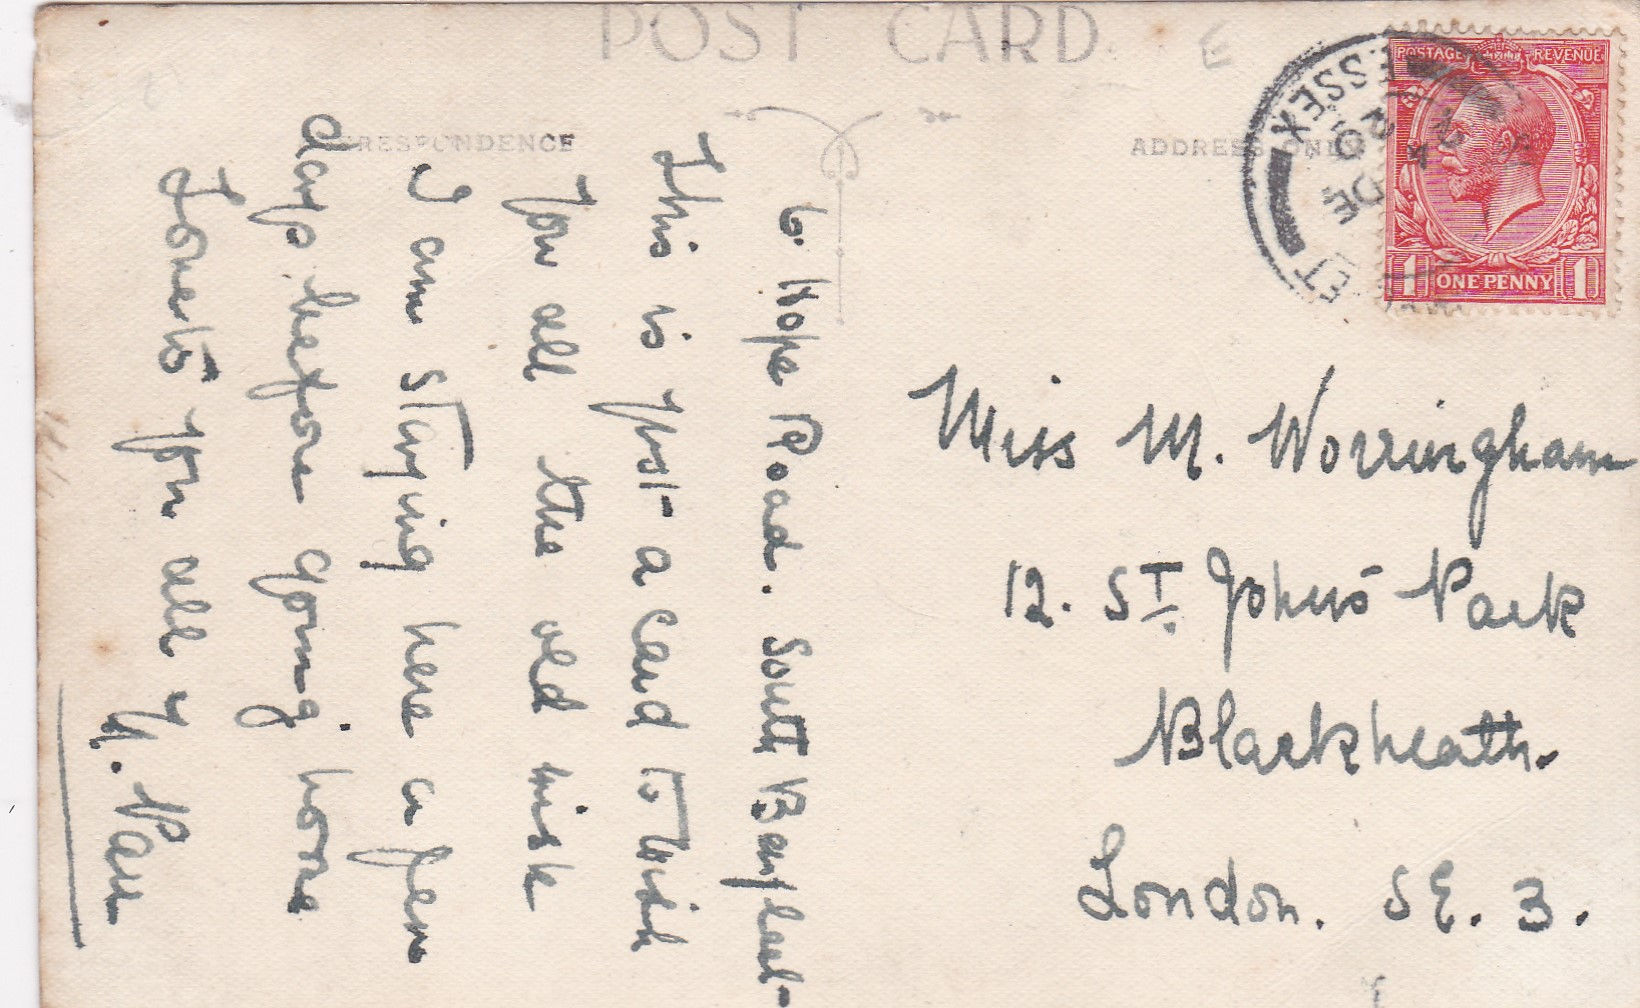 POST CARD
CORRESPONDENCE
ADDRESS ONLY
POSTAGE REVENUE
1 ONE PENNY 1
ESSEX
29 DE
ET
Miss M. Worringham
12. ST. Johns Park
Blackheath.
London. SE. 3.
6. Hope Road. South Benfleet-
This is just a card to wish
You all the old wish
I am staying here a few
days before going home
Love to you all